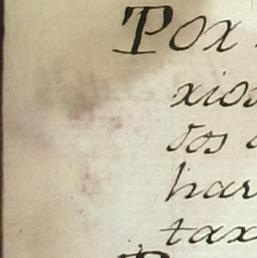 Pox
xios
dos
har
tax